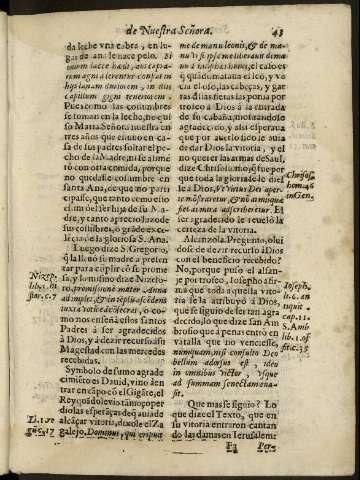 de Nuestra Señora. 43
da leche vna cabra, en lu-
gar de
lactem lacte
rem agni
hija
capillum
Pues como las costumbres
se toman en la leche, no qui
so Maria Señora nuestra en
tres años que estuuo en ca-
sa de sus padres soltar el pe-
cho de la Madre, ni se alimē
tò con otra comida, porque
no quedasse costumbre en
santa Ana, de que no parti
cipasse, que tanto como esto
estimò el ser hija de su Ma-
dre, y tanto aprecio hizo de
sus costūbres, ò grãdeza ex-
celēcia de la gloriosa S. Ana.
Luego dize S. Gregorio,
q̃ la lleuò su madre a presen
tar para cumplir cõ su prome
sa, y lo mismo dize Nizefo-
ro, promissione mater Anna
adimplet, & in tēplū
iuxta votū , ò co-
mo nos enseña estos Santos
Padres à ser agradecidos
à Dios, y à dezir recurso à su
Magestad con las mercedes
recebidas.
Symbolo de sumo agrade
cimiēto es Dauid, vino à en
trar en cāpo cõ el Gigāte, el
Rey quãdo le vio tā moço per
dio las esperāças de q̃ auia de
alcāçar vitoria, dixole el Za
galejo, Dominus, qui eripuit
me de manu leonis, & de ma-
nu vrsi ipse me liberauit de ma
nu Philisthæi huius, el caso es
q̃ quãdo mataua el leõ, y vē
cia el osso, las cabeças, y gar-
ras dī las fieras las ponia por
trofeo à Dios à la entrada
de su cabaña, mostrãndose
agradecido, y assi esperaua
que por auerlo sido le auia
de dar Dios la vitoria, y el
no querer las armas de Saul,
dize Chrysostomo, q̃ fue por
que toda la gloria se le die
se à Dios, Vt virtus Dei aper-
te mōstraretur, & nõ armis quæ
fiet armis ascriberetur. El
ser agradecido le reuelò la
certeza de la vitoria.
Alcançola. Pregunto, olui
dose de dezir recurso à Dios
con el beneficio recebido?
No, porque puso el alfan-
ge por trofeo, Iosepho afir-
ma que toda aquella vito-
ria se la atribuyò à Dios,
que se siguio de ser tan agra
decido, lo que dize san Am
brosio que à penas entrò en
vatalla que no venciesse,
nunquam, nisi consulto Deo
bellum adorsus est, ideu
in omnibus victor, vsque
ad summam senectam ma-
nu.
Que mas se siguio? Lo
que dize el Texto, Que en
su vitoria entraron cantan
do las damas en Ierusalem:
F3 Per-
Nizep.
lib. 1. hi
stor. c. 7
Li. 1. re
gū c. 17
Chrysos.
hom. 46
in Gen.
Ioseph.
li. 6. an
tiquæ
cap. 11.
S. Amb
lib. 1. of
fic. c. 35